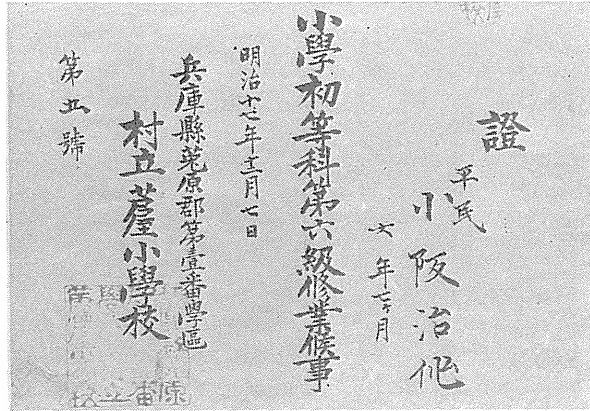 證
平民
小阪治
六年七ヶ月
小學初等科第六級修業候事
明治十七年十二月七日
兵庫縣菟原郡第壹番學區
村立蘆小學校
第五號